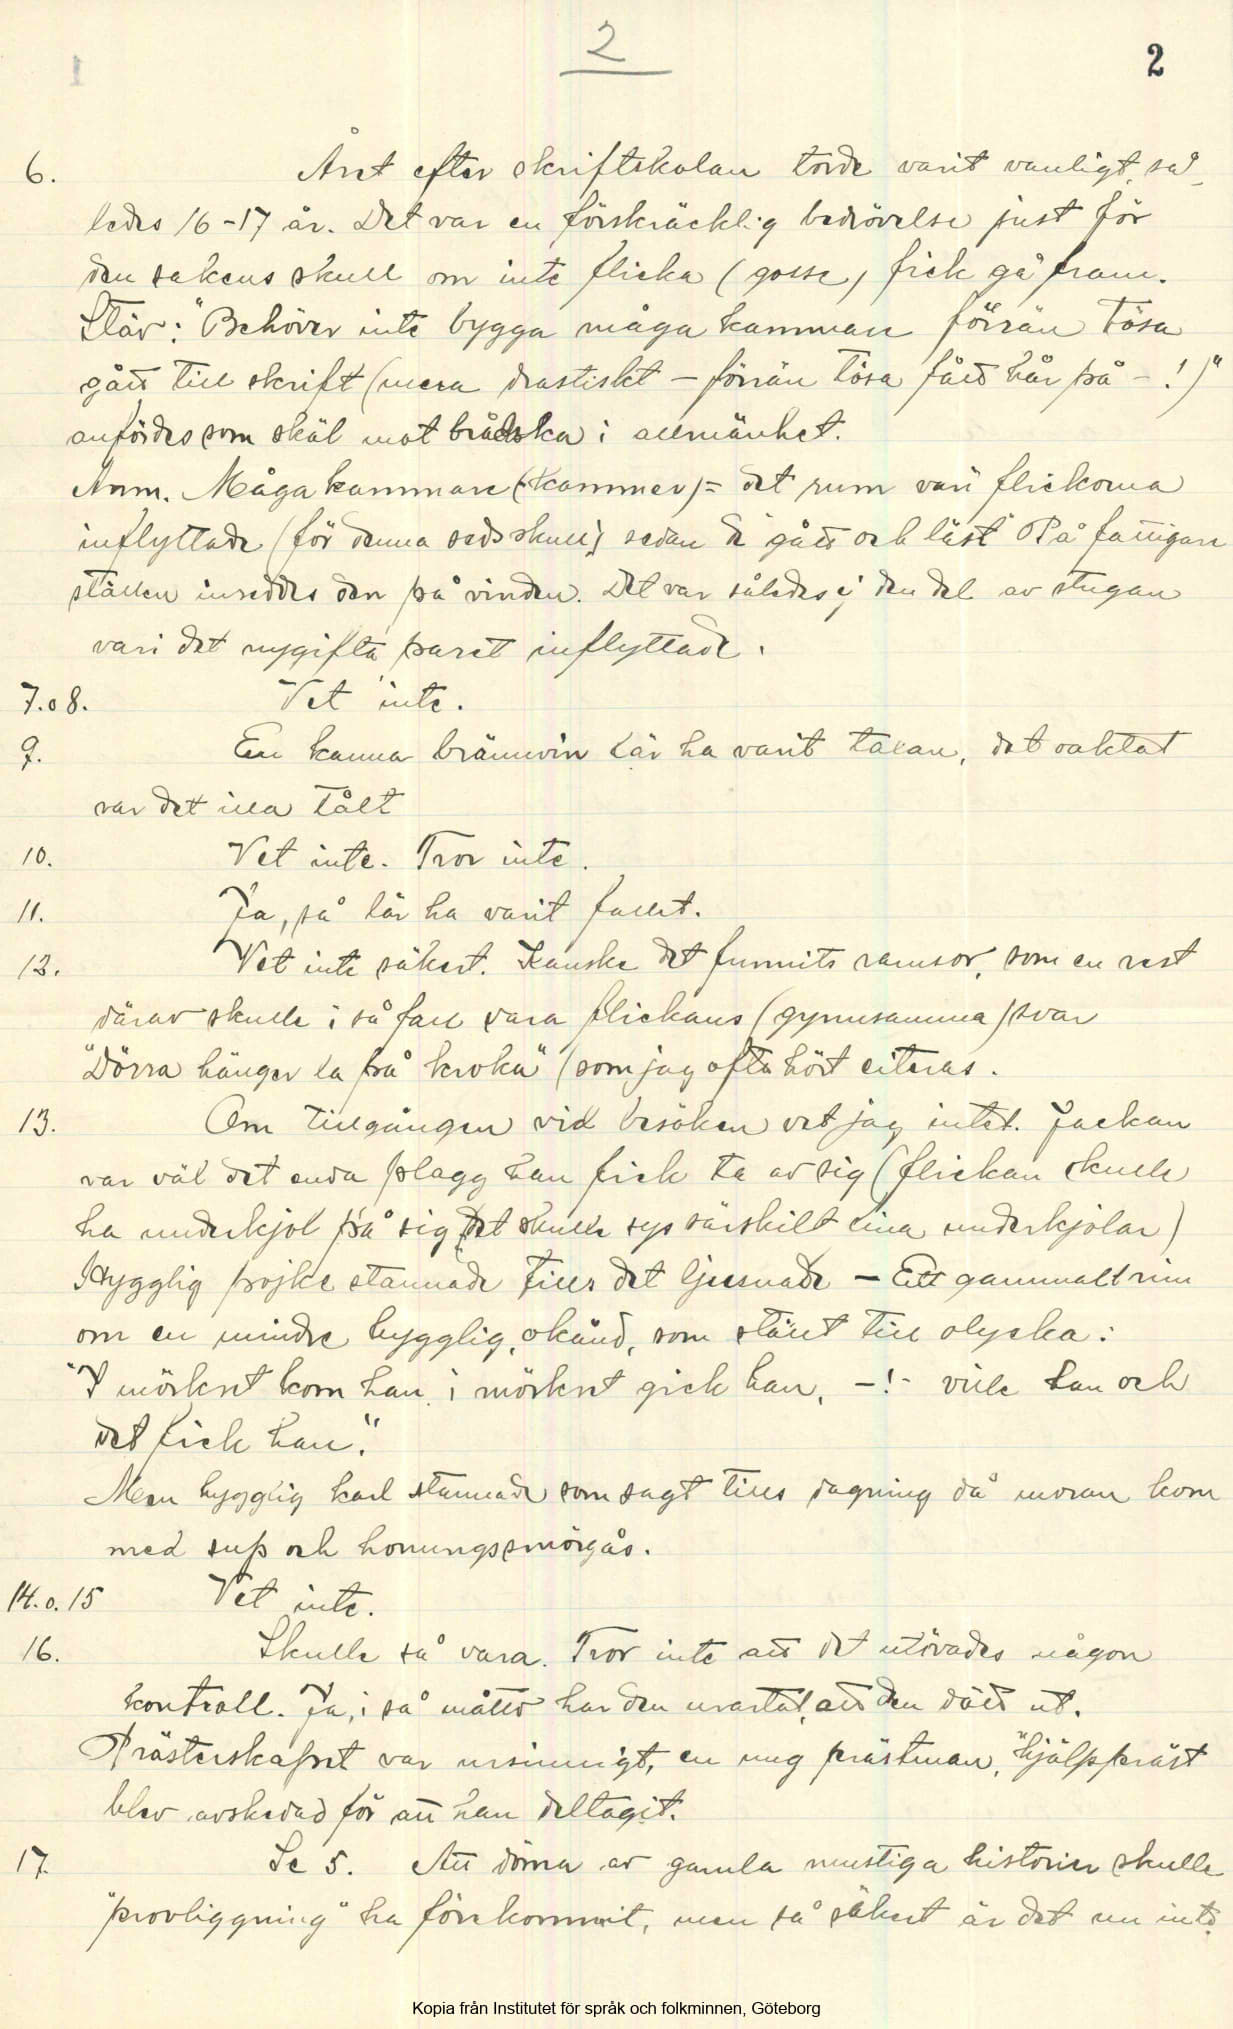 2
2
6. Året efter skriftskolan torde varit vanligt, så-
ledes 16-17 år. Det var en förskräcklig bedrövelse just för
den sakens skull om inte flicka (gosse) fick gå fram.
Stäv: "Behöver inte bygga mågakammare förrän tösa
gått till skrift (mera drastiskt – förrän tösa fått hår på – !)"
anfördes som skäl mot brådska i allmänhet.
Anm. Mågakammare (-kammer) = det rum vari flickorna
inflyttade (för denna seds skull) sedan de "gått och läst" På fattigare
ställen inreddes den på vinden. Det var således ej den del av stugan
vari det nygifta paret inflyttade.
7. o 8. Vet inte.
9. En kanna brännvin lär ha varit taxan, det oaktat
var det illa tålt
10. Vet inte. Tror inte.
11. Ja, så lär ha varit fallet.
12. Vet inte säkert. Kanske det funnits ramsor, som en rest
därav skulle i så fall vara flickans (gynnsamma) svar
"Dörra hänger la på kroka" (som jag ofta hört citeras.
13. Om tillgången vid besöken vet jag intet. Jackan
var väl det enda plagg han fick ta av sig (flickan skulle
ha underkjol på sig, det skulle sys särskilt fina underkjolar)
Hygglig pojke stannade tills det ljusnade – Ett gammalt rim
om en mindre hygglig, okänd, som ställt till olycka:
"I mörkret kom han, i mörkret gick han, –!– ville han och
det fick han".
Men hygglig karl stannade som sagt tills dagning då moran kom
med sup och honungssmörgås.
14. o. 15 Vet inte.
16. Skulle så vara. Tror inte att det utövades någon
kontroll. Ja, i så måtto har den urartat, att den dött ut.
Prästerskapet var ursinnigt, en ung prästman, "hjälppräst
blev avskedad för att han deltagit.
17. Se 5. Att döma av gamla mustiga historier skulle
"provliggning" ha förekommit, men så säkert är det nu inte.
Kopia från Institutet för språk och folkminnen, Göteborg